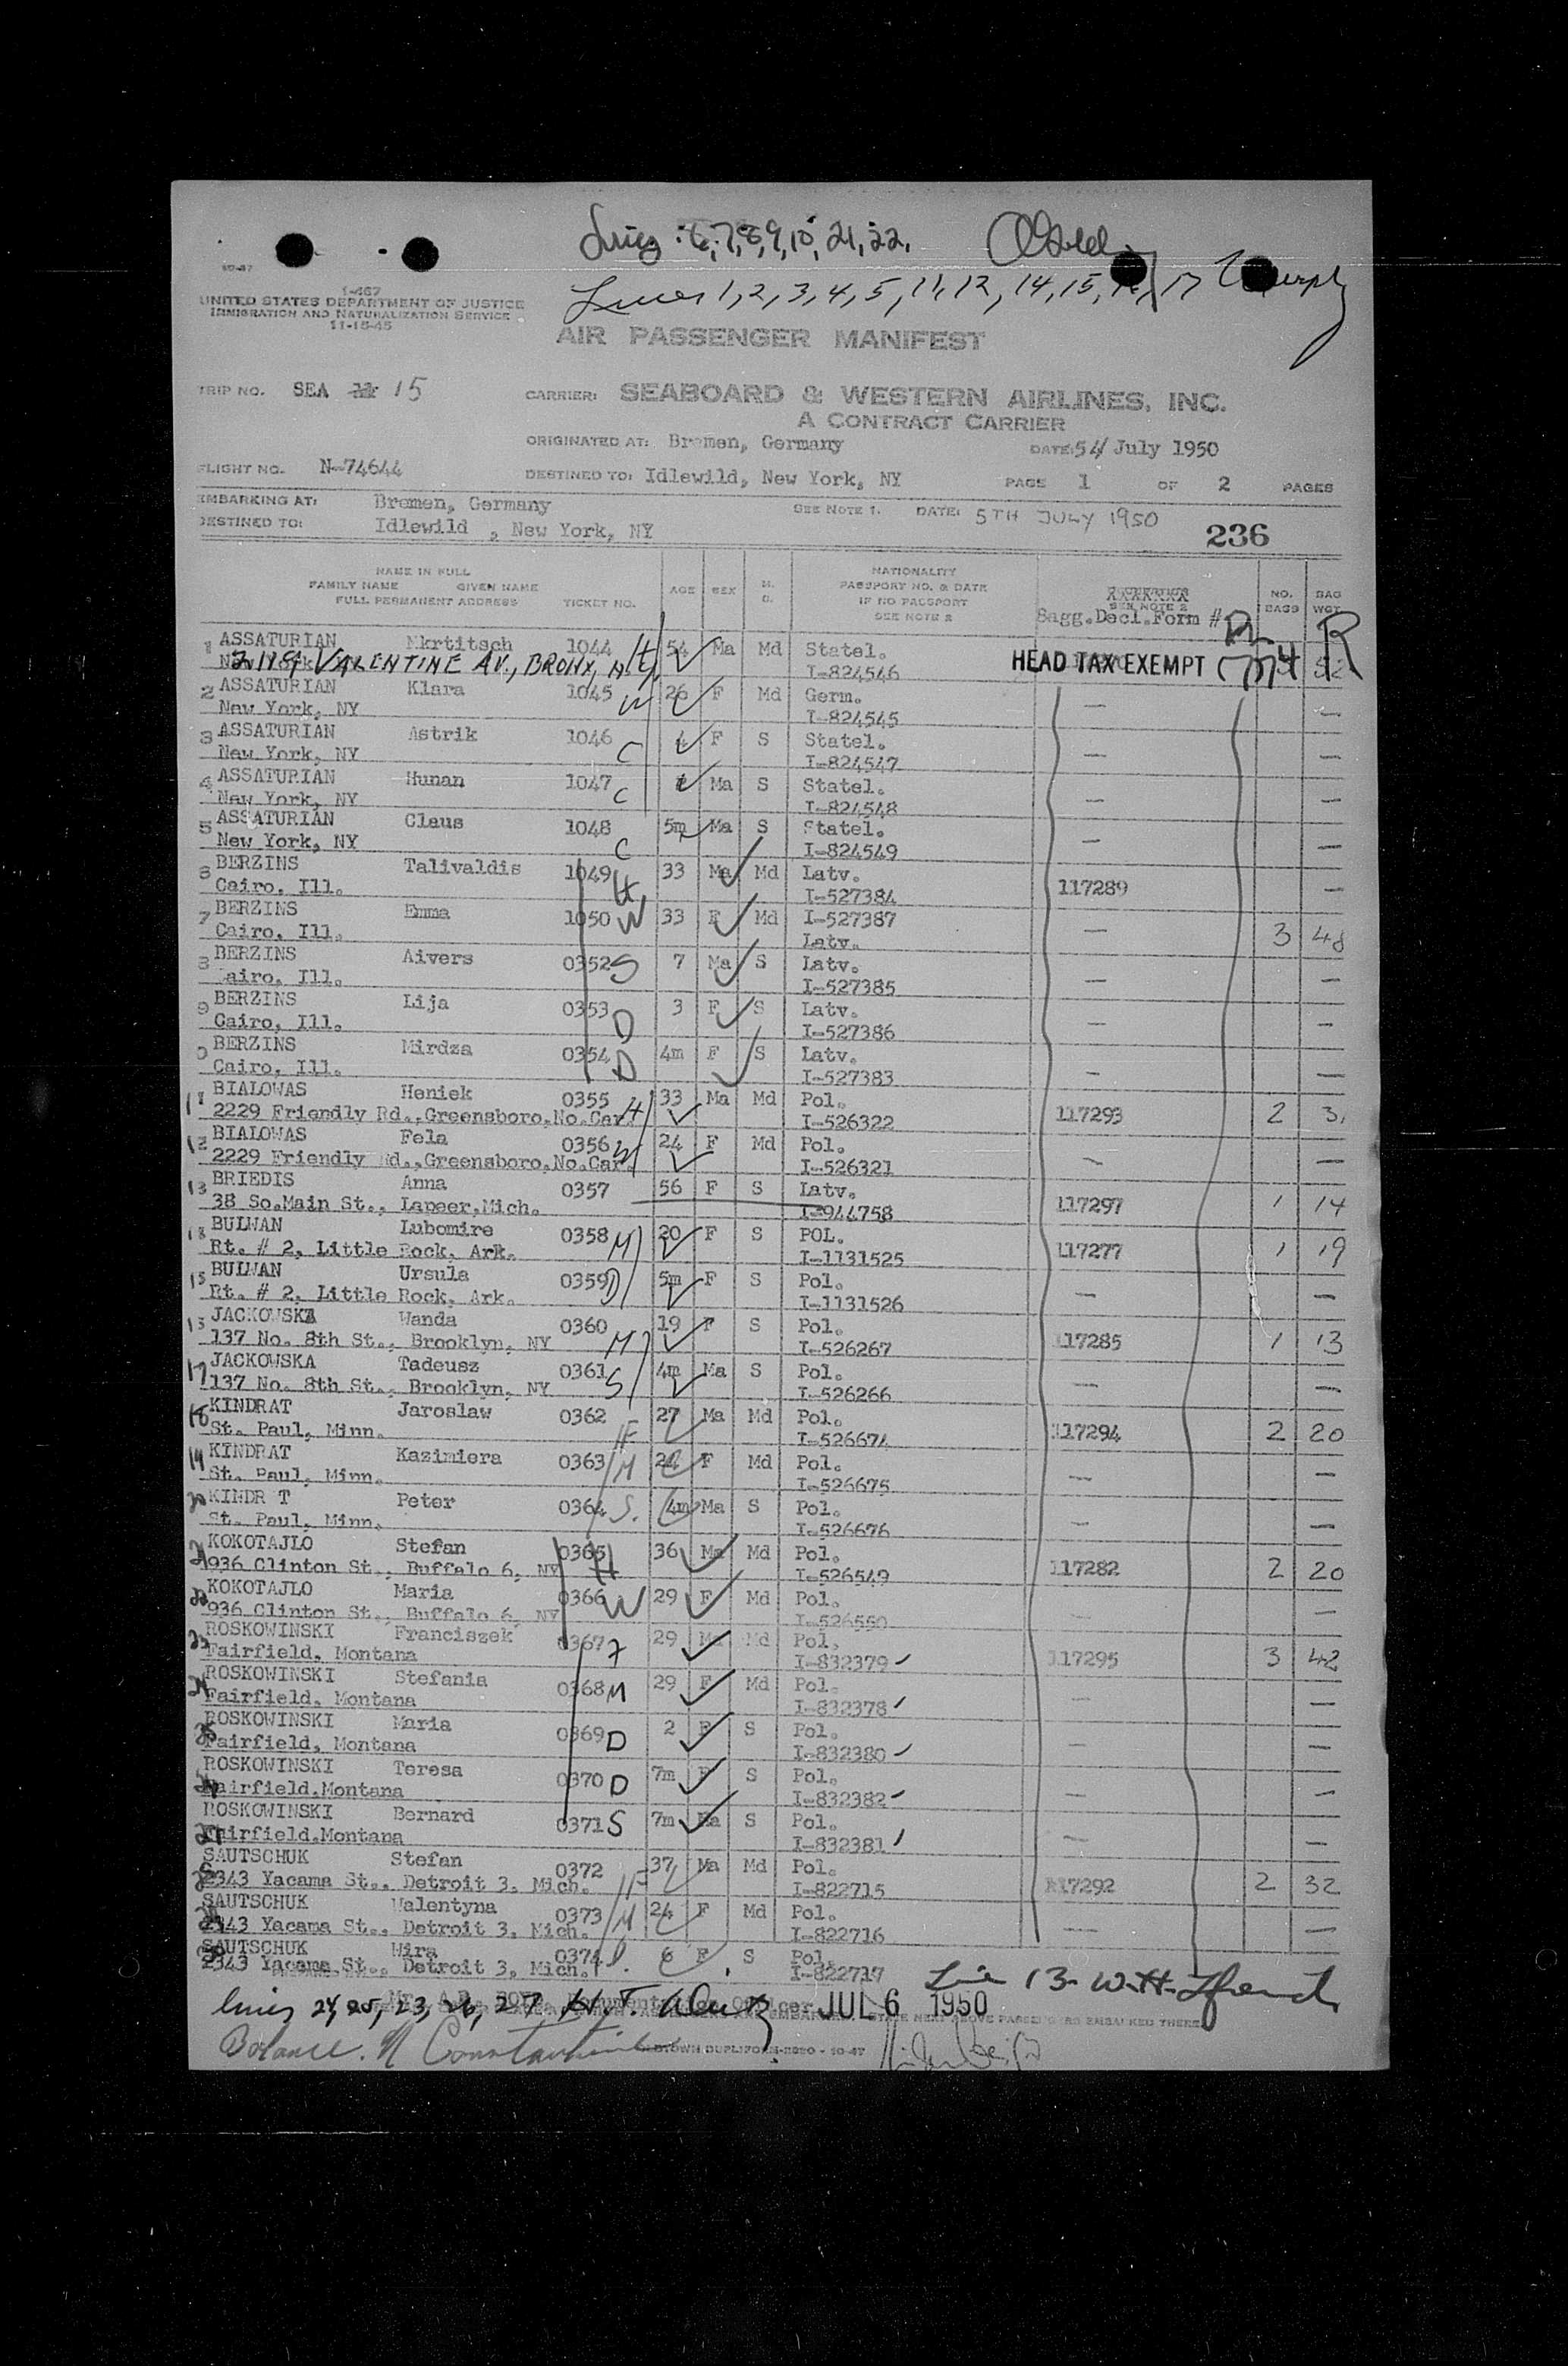 Lines 6, 7, 8, 9, 10, 21, 22.
Lines 1, 2, 3, 4, 5, 11, 12, 14, 15, 16, 17
10-47
I-467
UNITED STATES DEPARTMENT OF JUSTICE
IMMIGRATION AND NATURALIZATION SERVICE
11-15-45
AIR PASSENGER MANIFEST
TRIP NO. SEA 15
CARRIER: SEABOARD & WESTERN AIRLINES, INC.
A CONTRACT CARRIER
ORIGINATED AT: Bremen, Germany DATE: 5 July 1950
FLIGHT NO. N-74644 DESTINED TO: Idlewild, New York, NY PAGE 1 OF 2 PAGES
EMBARKING AT: Bremen, Germany SEE NOTE 1. DATE: 5TH JULY 1950
DESTINED TO: Idlewild , New York, NY 236
NAME IN FULL
FAMILY NAME GIVEN NAME
FULL PERMANENT ADDRESS TICKET NO. AGE SEX M. S. NATIONALITY PASSPORT NO. & DATE IF NO PASSPORT SEE NOTE 2 SEE NOTE 2 Bagg.Decl.Form # NO. BAGS BAG WGT.
1 ASSATURIAN Mkrtitsch 1044 H 54 Ma Md Statel.
2119 VALENTINE AV., BRONX, N.Y. I-824546 HEAD TAX EXEMPT 4 52 R
2 ASSATURIAN Klara 1045 W 26 F Md Germ.
New York, NY I-824545 — —
3 ASSATURIAN Astrik 1046 C 4 F S Statel.
New York, NY I-824547 — —
4 ASSATURIAN Hunan 1047 C Ma S Statel.
New York, NY I-824548 — —
5 ASSATURIAN Claus 1048 C 5m Ma S Statel.
New York, NY I-824549 — —
6 BERZINS Talivaldis 1049 H 33 Ma Md Latv.
Cairo, Ill. I-527384 117289 —
7 BERZINS Emma 1050 W 33 F Md I-527387
Cairo, Ill. Latv. — 3 48
8 BERZINS Aivers 0352 S 7 Ma S Latv.
Cairo, Ill. I-527385 — —
9 BERZINS Lija 0353 D 3 F S Latv.
Cairo, Ill. I-527386 — —
0 BERZINS Mirdza 0354 D 4m F S Latv.
Cairo, Ill. I-527383 — —
11 BIALOWAS Heniek 0355 H 33 Ma Md Pol.
2229 Friendly Rd.,Greensboro,No.Car. I-526322 117293 2 3
12 BIALOWAS Fela 0356 W 24 F Md Pol.
2229 Friendly Rd.,Greensboro,No.Car. I-526321 — —
13 BRIEDIS Anna 0357 56 F S Latv.
38 So.Main St., Lapeer,Mich. I-944758 117297 1 14
BULWAN Lubomire 0358 M 20 F S POL.
Rt. # 2, Little Rock, Ark. I-1131525 117277 1 19
15 BULWAN Ursula 0359 D 5m F S Pol.
Rt. # 2, Little Rock, Ark. I-1131526 — —
JACKOWSKA Wanda 0360 M 19 F S Pol.
137 No. 8th St., Brooklyn, NY I-526267 117285 1 13
17 JACKOWSKA Tadeusz 0361 S 4m Ma S Pol.
137 No. 8th St., Brooklyn, NY I-526266 — —
18 KINDRAT Jaroslaw 0362 HF 27 Ma Md Pol.
St. Paul, Minn. I-526674 117294 2 20
19 KINDRAT Kazimiera 0363 M 24 F Md Pol.
St. Paul, Minn. I-526675 — —
20 KINDR T Peter 0364 S. 4m Ma S Pol.
St. Paul, Minn. I-526676 — —
21 KOKOTAJLO Stefan 0365 H 36 Ma Md Pol.
936 Clinton St., Buffalo 6, NY I-526549 117282 2 20
22 KOKOTAJLO Maria 0366 W 29 F Md Pol.
936 Clinton St., Buffalo 6, NY I-526550 — —
23 ROSKOWINSKI Franciszek 0367 F 29 Ma Md Pol.
Fairfield, Montana I-832379 117295 3 42
24 ROSKOWINSKI Stefania 0368 M 29 F Md Pol.
Fairfield, Montana I-832378 — —
25 ROSKOWINSKI Maria 0369 D 2 F S Pol.
Fairfield, Montana I-832380 — —
26 ROSKOWINSKI Teresa 0370 D 7m F S Pol.
Fairfield.Montana I-832382 — —
27 ROSKOWINSKI Bernard 0371 S 7m Ma S Pol.
Fairfield.Montana I-832381 — —
28 SAUTSCHUK Stefan 0372 HF 37 Ma Md Pol.
2343 Yacama St., Detroit 3, Mich. I-822715 117292 2 32
29 SAUTSCHUK Walentyna 0373 M 24 F Md Pol.
2343 Yacama St., Detroit 3, Mich. I-822716 — —
SAUTSCHUK Wira 0374 D. 6 F S Pol.
2343 Yacama St., Detroit 3, Mich. I-822717
Line 13-
lines 24, 25, 23, 26, 27 JUL 6 1950
Balance. N Constantine BROWN